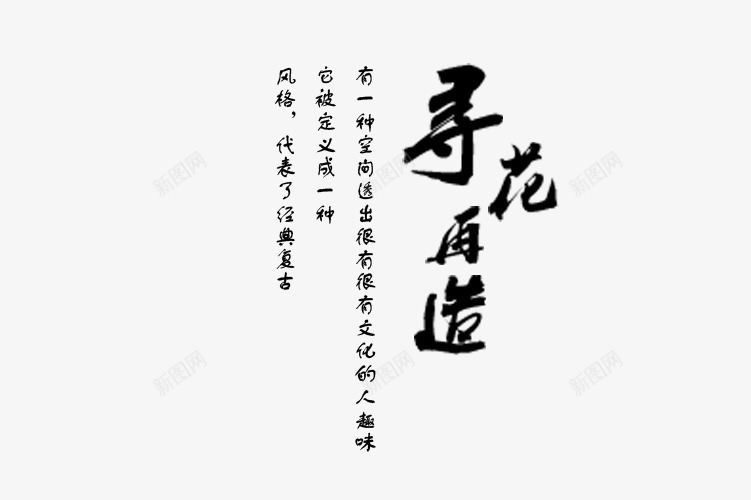 寻花再造
有一种空间透出很有很有文化的人趣味
它被定义成一种
风格，代表了经典复古
新图网
新图网
新图网
新图网
新图网
新图网